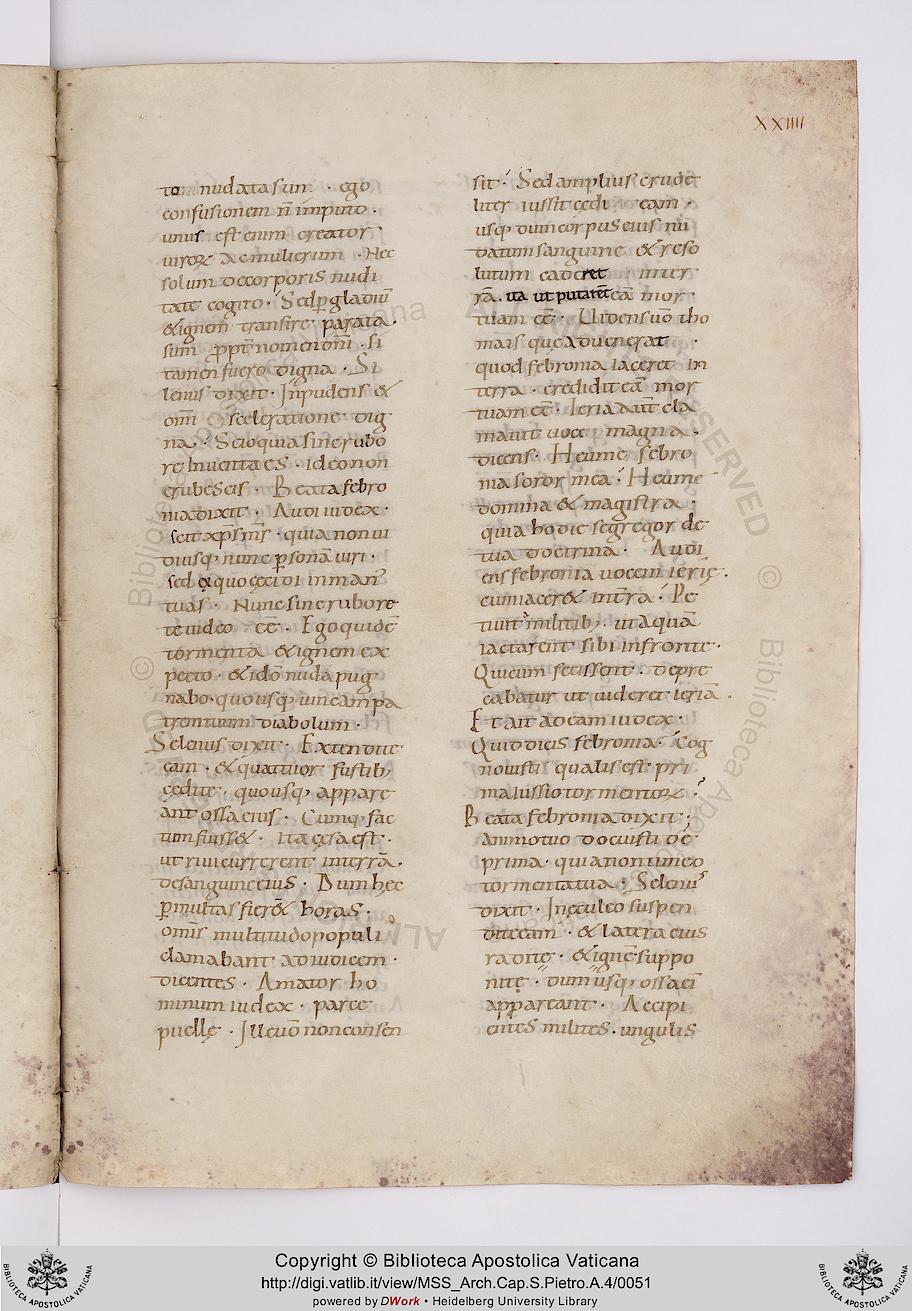 XXIIII
to nudata sum · ego
confusionem n̄ imputo ·
unus est enim creator
uiroꝝ ac mulierum · Nec
solum de corporis nudi
tate cogito · Sed ꝑ gladiū
& ignem transire parata
sum ꝓpt̄ nomen dn̄i · Si
tamen fuero digna · Se
lenus dixit · Inpudens &
omī sceleratione dig
na · Scio quia sine rubo
re Inuenta es · Ideo non
erubescis · Beata febro
nia dixit · Audi iudex ·
scit xp̄s m̄s · quia non ui
di usq; nunc ꝑsonā uiri ·
sed ex quo cęcidi in man
tuas · Nunc sine rubore
te uideo eē · Ego quidē
tormenta & ignem ex
pecto · & idō nuda pug
nabo · quousq; uincam pa
trem tuum diabolum ·
Selenus dixit · Extendite
eam · & quattuor fustib;
cędite · quousq; appare
ant ossa eius · Cumq; fac
tum fuiss& · Ita cęsa est ·
ut riui currerent in terrā ·
de sanguine eius · Dum hec
ꝑ multas fier& horas ·
omīs multitudo populi
clamabant ad iudicem ·
dicentes · Amator ho
minum iudex · parce
puellę · Ille uō non consen
sit · Sed amplius crude
liter iussit cędi eam ·
usq; dum corpus eius nu
datum sanguine & reso
lutum caderet inter
rā · ita ut putarēt eā mor
tuam eē · Uidens uō tho
mais que aduenerat ·
quod febronia iaceret in
terra · credidit eā mor
tuam eē · Ieria aut̄ cla
mauit uoce magna ·
dicens · Heu me febro
nia soror mea · Heu me
domina & magistra ·
quia hodie segregor de
tua doctrina · Audi
ens febronia uocem ierię ·
cum iacer& in tr̄a · Pe
tiuit militib; · ut aquā
iactarent sibi in fronte ·
Qui cum fecissent · depre
cabatur ut uideret ieriā ·
Et ait ad eam iudex ·
Quid dicis febronia · Cog
nouisti qualis est pri
ma lussio tormentoꝝ ·
Beata febronia dixit ;
Animo tuo docuisti de
prima · quia non timeo
tormenta tua · Selenus
dixit · In eculeo suspen
dite eam · & latera eius
radite · & ignē suppo
nite · dum usq; ossa ei
appareant · Accipi
entes milites · ungulis
Copyright © Biblioteca Apostolica Vaticana
http://digi.vatlib.it/view/MSS_Arch.Cap.S.Pietro.A.4/0051
powered by DWork • Heidelberg University Library